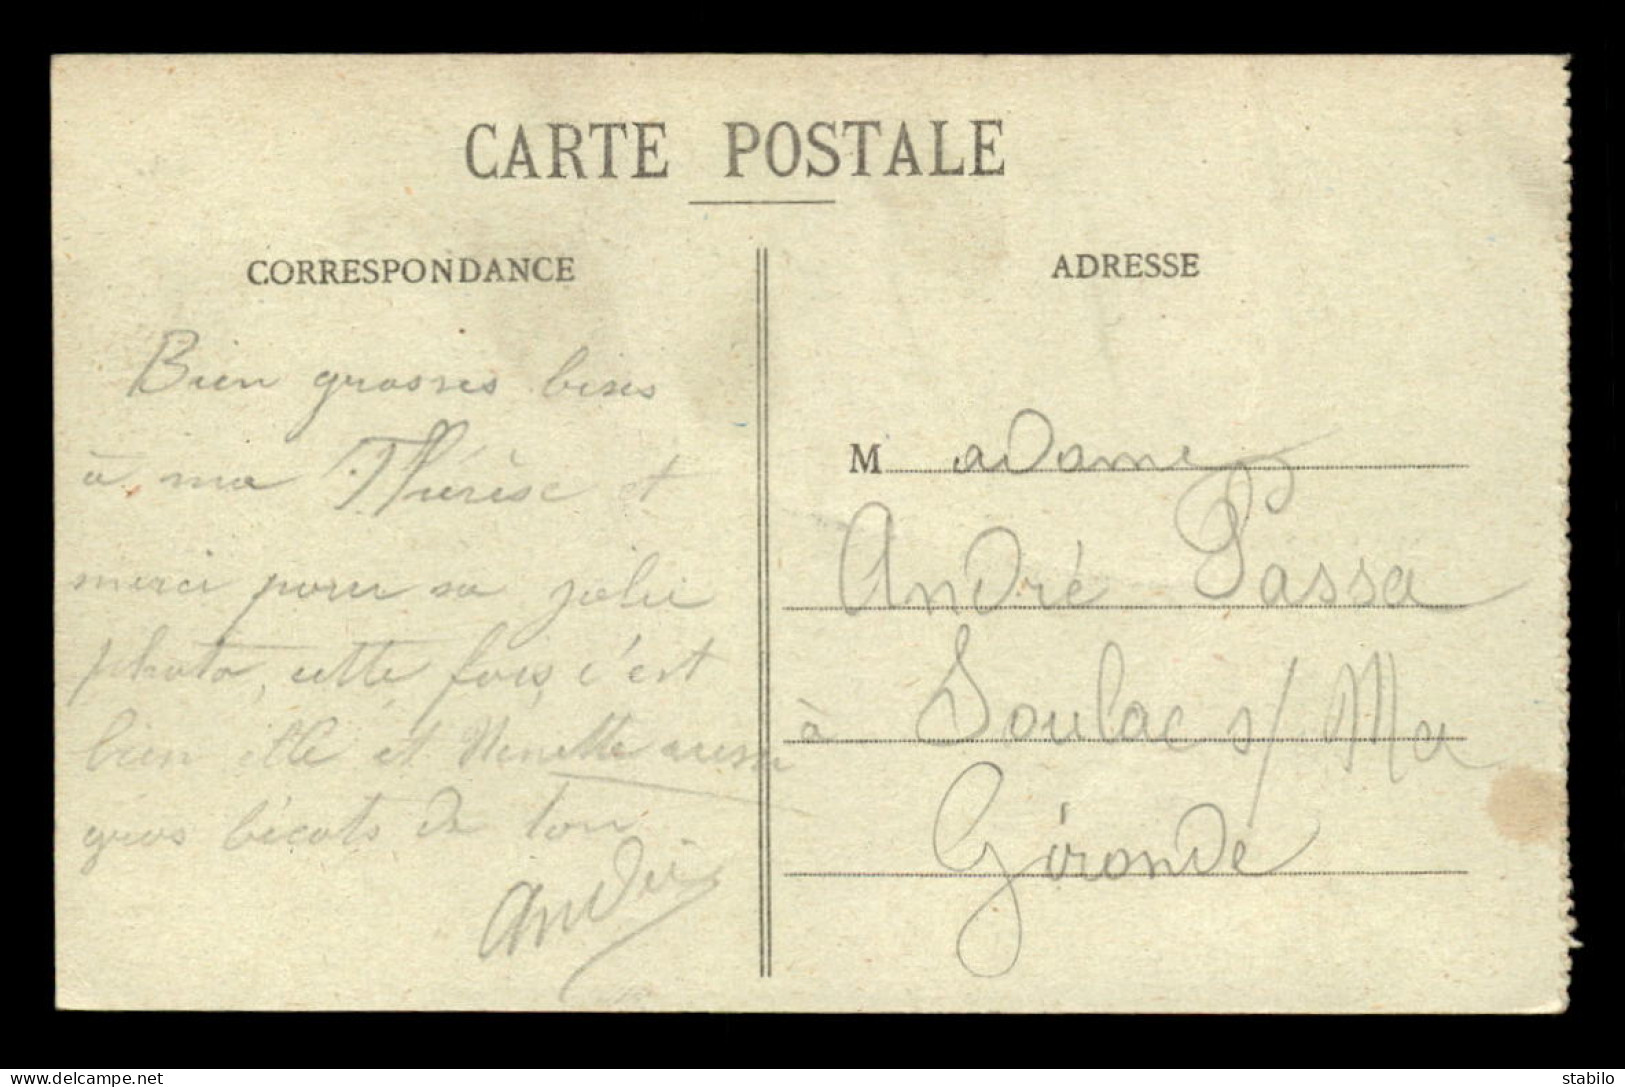 CARTE POSTALE
CORRESPONDANCE
Bien grosses bises
à ma Thérèse et
merci pour sa jolie
photo, cette fois c'est
bien elle et Nénette aussi
gros bécots de ton
André
ADRESSE
Madame
André Passa
à Soulac s/ Mer
Gironde
www.delcampe.net
stabilo